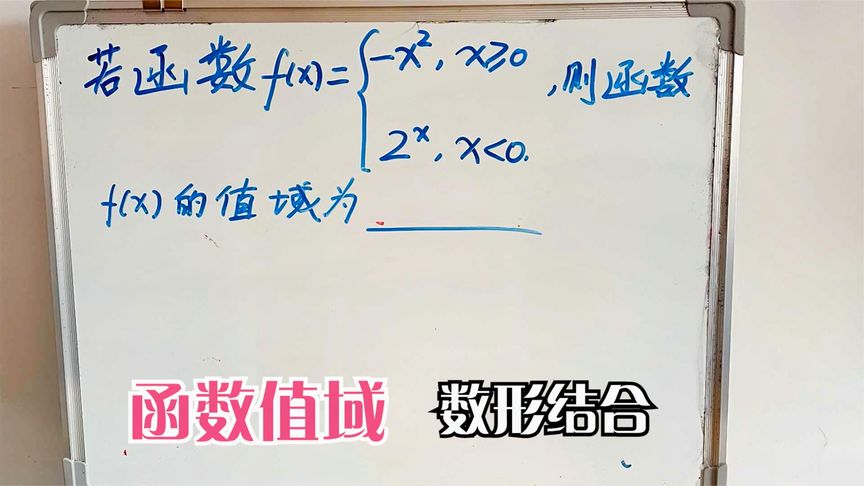 若函数f(x)={-x², x≥0 ,则函数
2ˣ, x<0.
f(x)的值域为
函数值域 数形结合